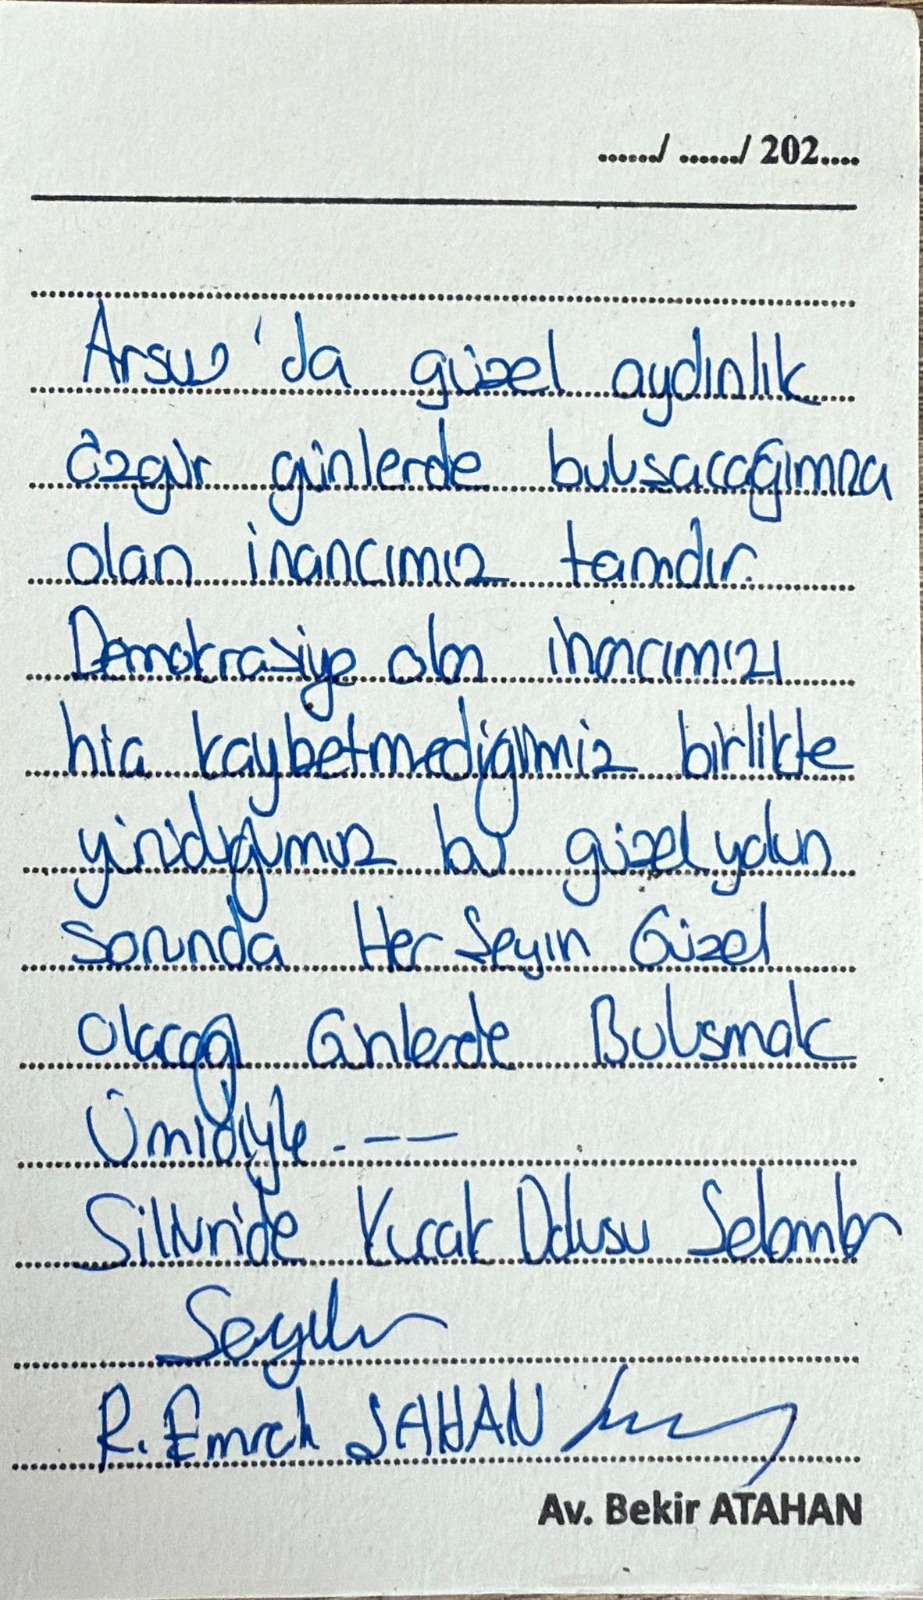 ....../ ....../ 202....
Arsuz'da güzel aydınlık
özgür günlerde buluşacağımıza
olan inancımız tamdır.
Demokrasiye olan inancımızı
hiç kaybetmediğimiz birlikte
yürüdüğümüz bu güzel yolun
sonunda Her Şeyin Güzel
Olacağı Günlerde Buluşmak
Ümidiyle.---
Silivri'de Kucak Dolusu Selamlar
R. Emrah ŞAHAN
Av. Bekir ATAHAN